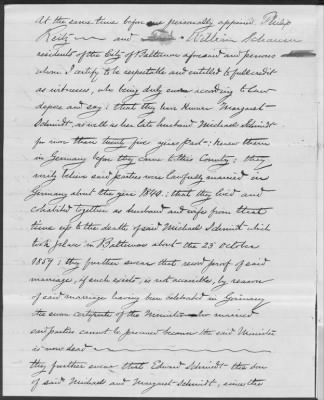 At the same time before me personally appeared Philip
Reitz and William Schauer
residents of the City of Baltimore aforesaid and persons
whom I certify to be respectable and entitled to full credit
as witnesses, who being duly sworn according to Law
depose and say; that they have known Margaret
Schmidt, as well as her late husband Michael Schmidt
for more than twenty five years past; knew them
in Germany before they came to this Country; they
verily believe said parties were lawfully married in
Germany about the year 1840; that they lived and
cohabited together as husband and wife from that
time up to the death of said Michael Schmidt which
took place in Baltimore about the 25 October
1859; they further swear that record proof of said
marriage, if such exists, is not accessible, by reason
of said marriage having been celebrated in Germany
the sworn certificate of the Minister who married
said parties cannot be procured because the said Minister
is now dead
they further swear that Edward Schmidt the son
of said Michael and Margaret Schmidt, since the